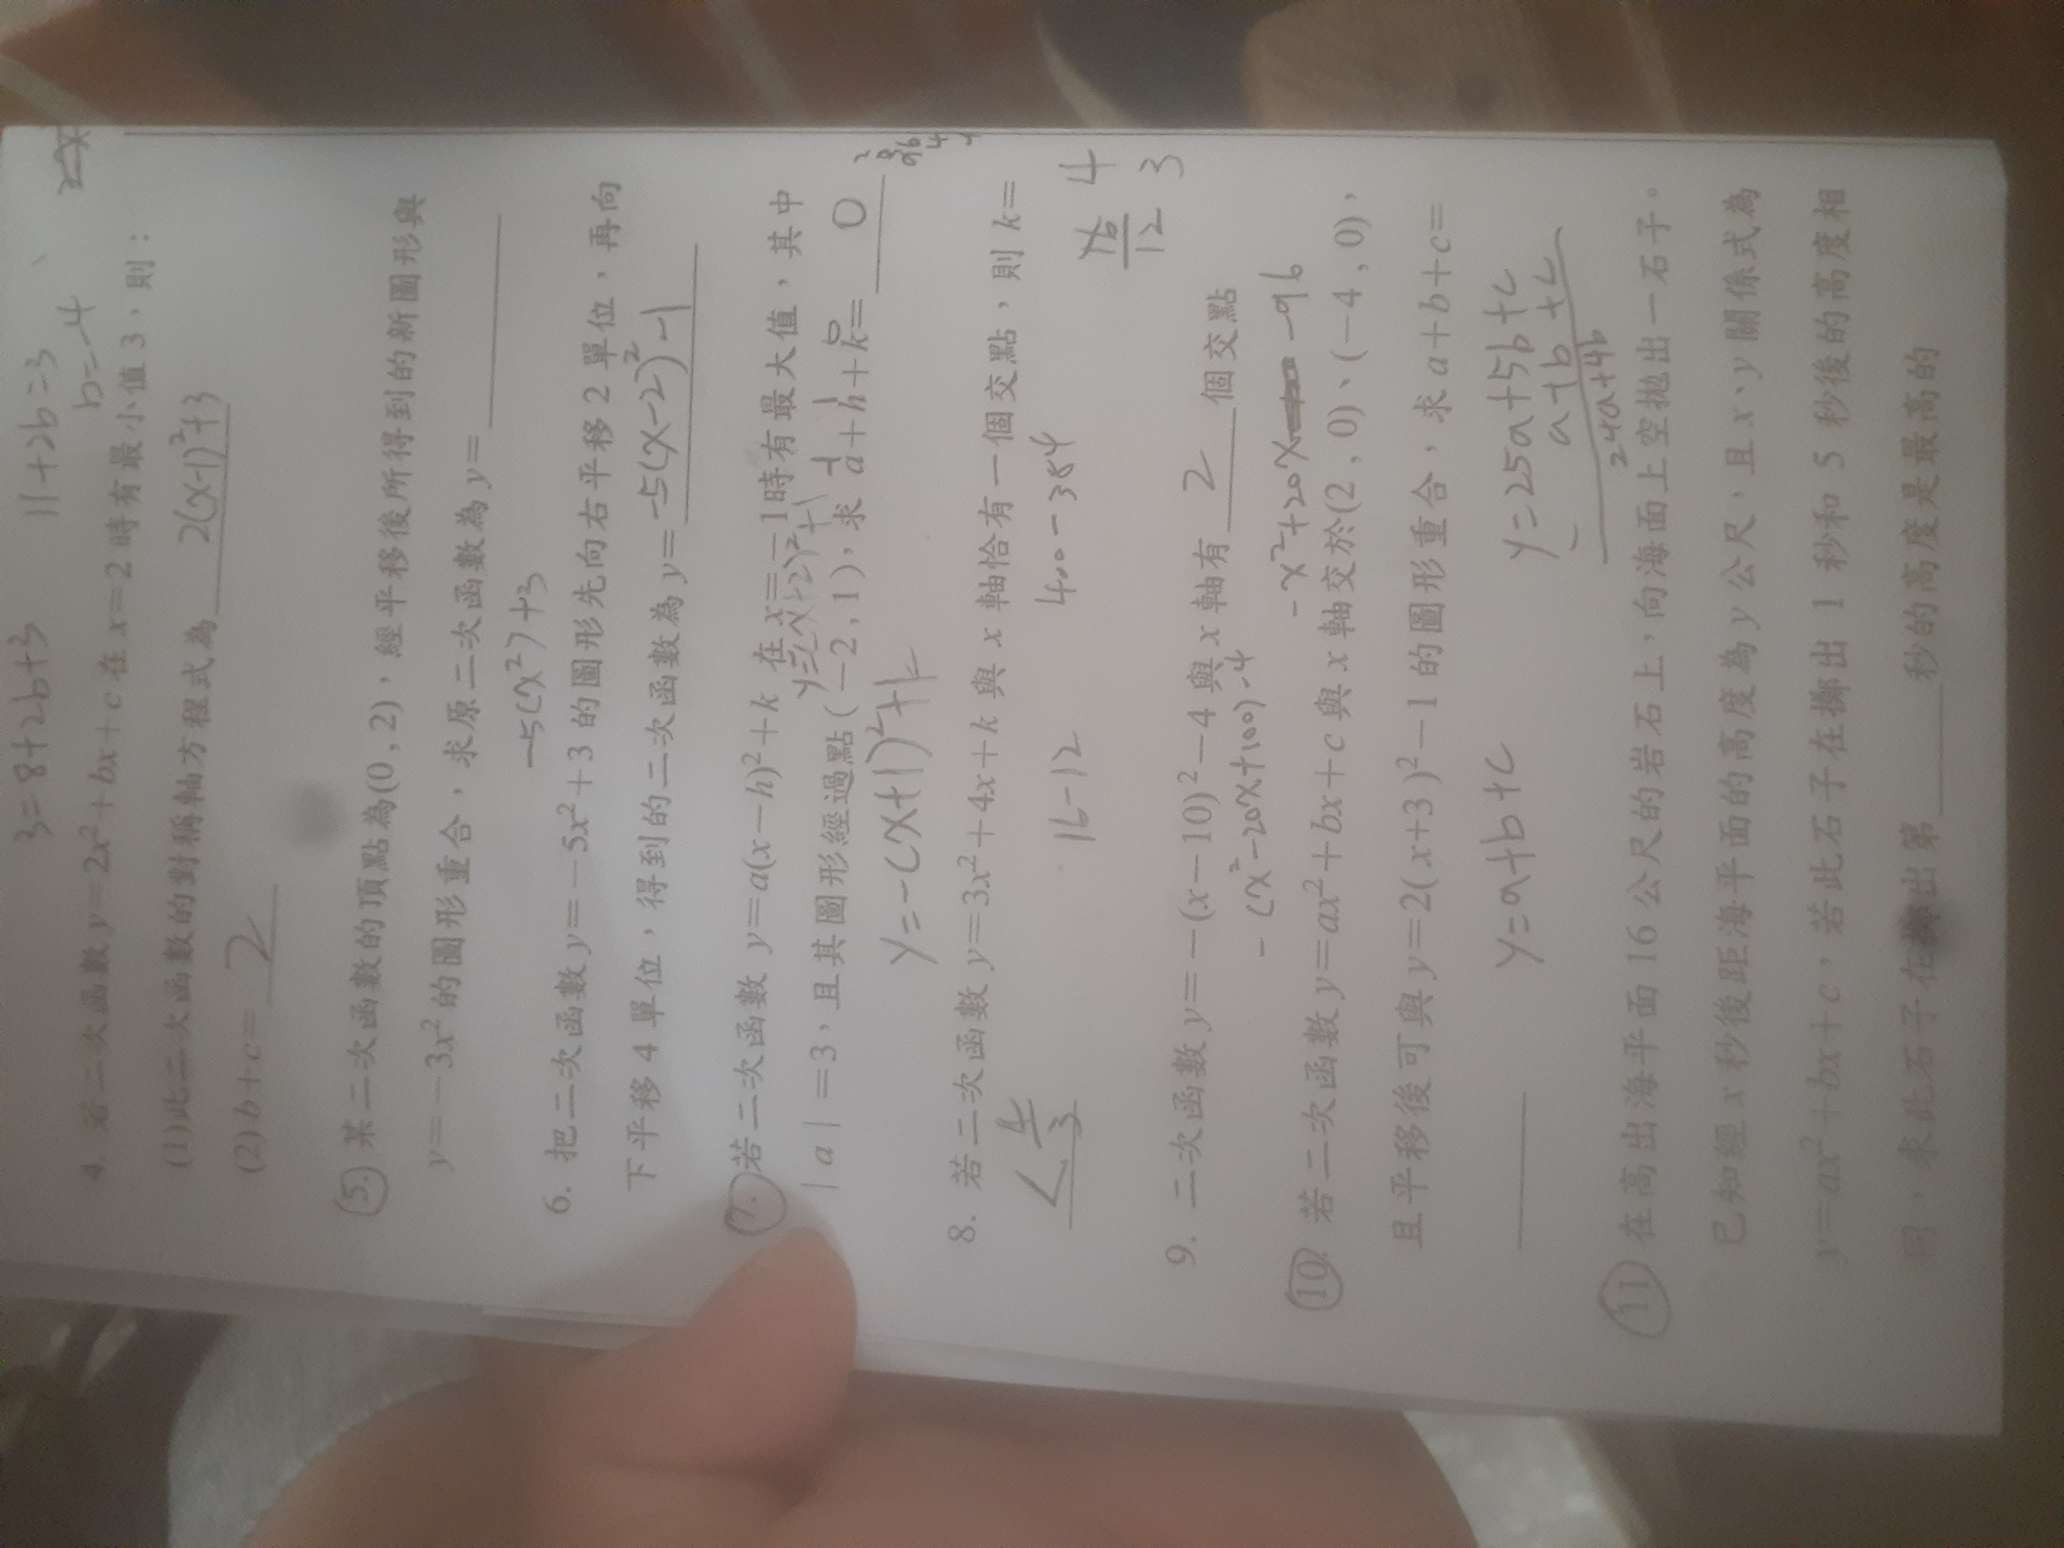 3=8+2b+3
11+2b=3
b=-4
4. 若二次函數 y=2x²+bx+c 在 x=2 時有最小值 3，則：
(1)此二次函數的對稱軸方程式為 2(x-1)²+3
(2) b+c= 2
5. 某二次函數的頂點為(0,2)，經平移後所得到的新圖形與
y=-3x² 的圖形重合，求原二次函數為 y=
-5(x²)+3
6. 把二次函數 y=-5x²+3 的圖形先向右平移 2 單位，再向
下平移 4 單位，得到的二次函數為 y= -5(x-2)²-1
7. 若二次函數 y=a(x-h)²+k 在 x=-1 時有最大值，其中
|a|=3，且其圖形經過點(-2,1)，求 a+h+k= 0
y=-(x+1)²+1
8. 若二次函數 y=3x²+4x+k 與 x 軸恰有一個交點，則 k=
16-12
400-384
16 4
12 3
9. 二次函數 y=-(x-10)²-4 與 x 軸有 2 個交點
-(x²-20x+100)-4
-x²+20x -96
10. 若二次函數 y=ax²+bx+c 與 x 軸交於(2,0)、(-4,0)，
且平移後可與 y=2(x+3)²-1 的圖形重合，求 a+b+c=
y=a+b+c
y=25a+5b+c
a+b+c
24a+4b
11. 在高出海平面 16 公尺的岩石上，向海面上空拋出一石子。
已知經 x 秒後距海平面的高度為 y 公尺，且 x、y 關係式為
y=ax²+bx+c，若此石子在擲出 1 秒和 5 秒後的高度相
同，求此石子在擲出第 秒的高度是最高的